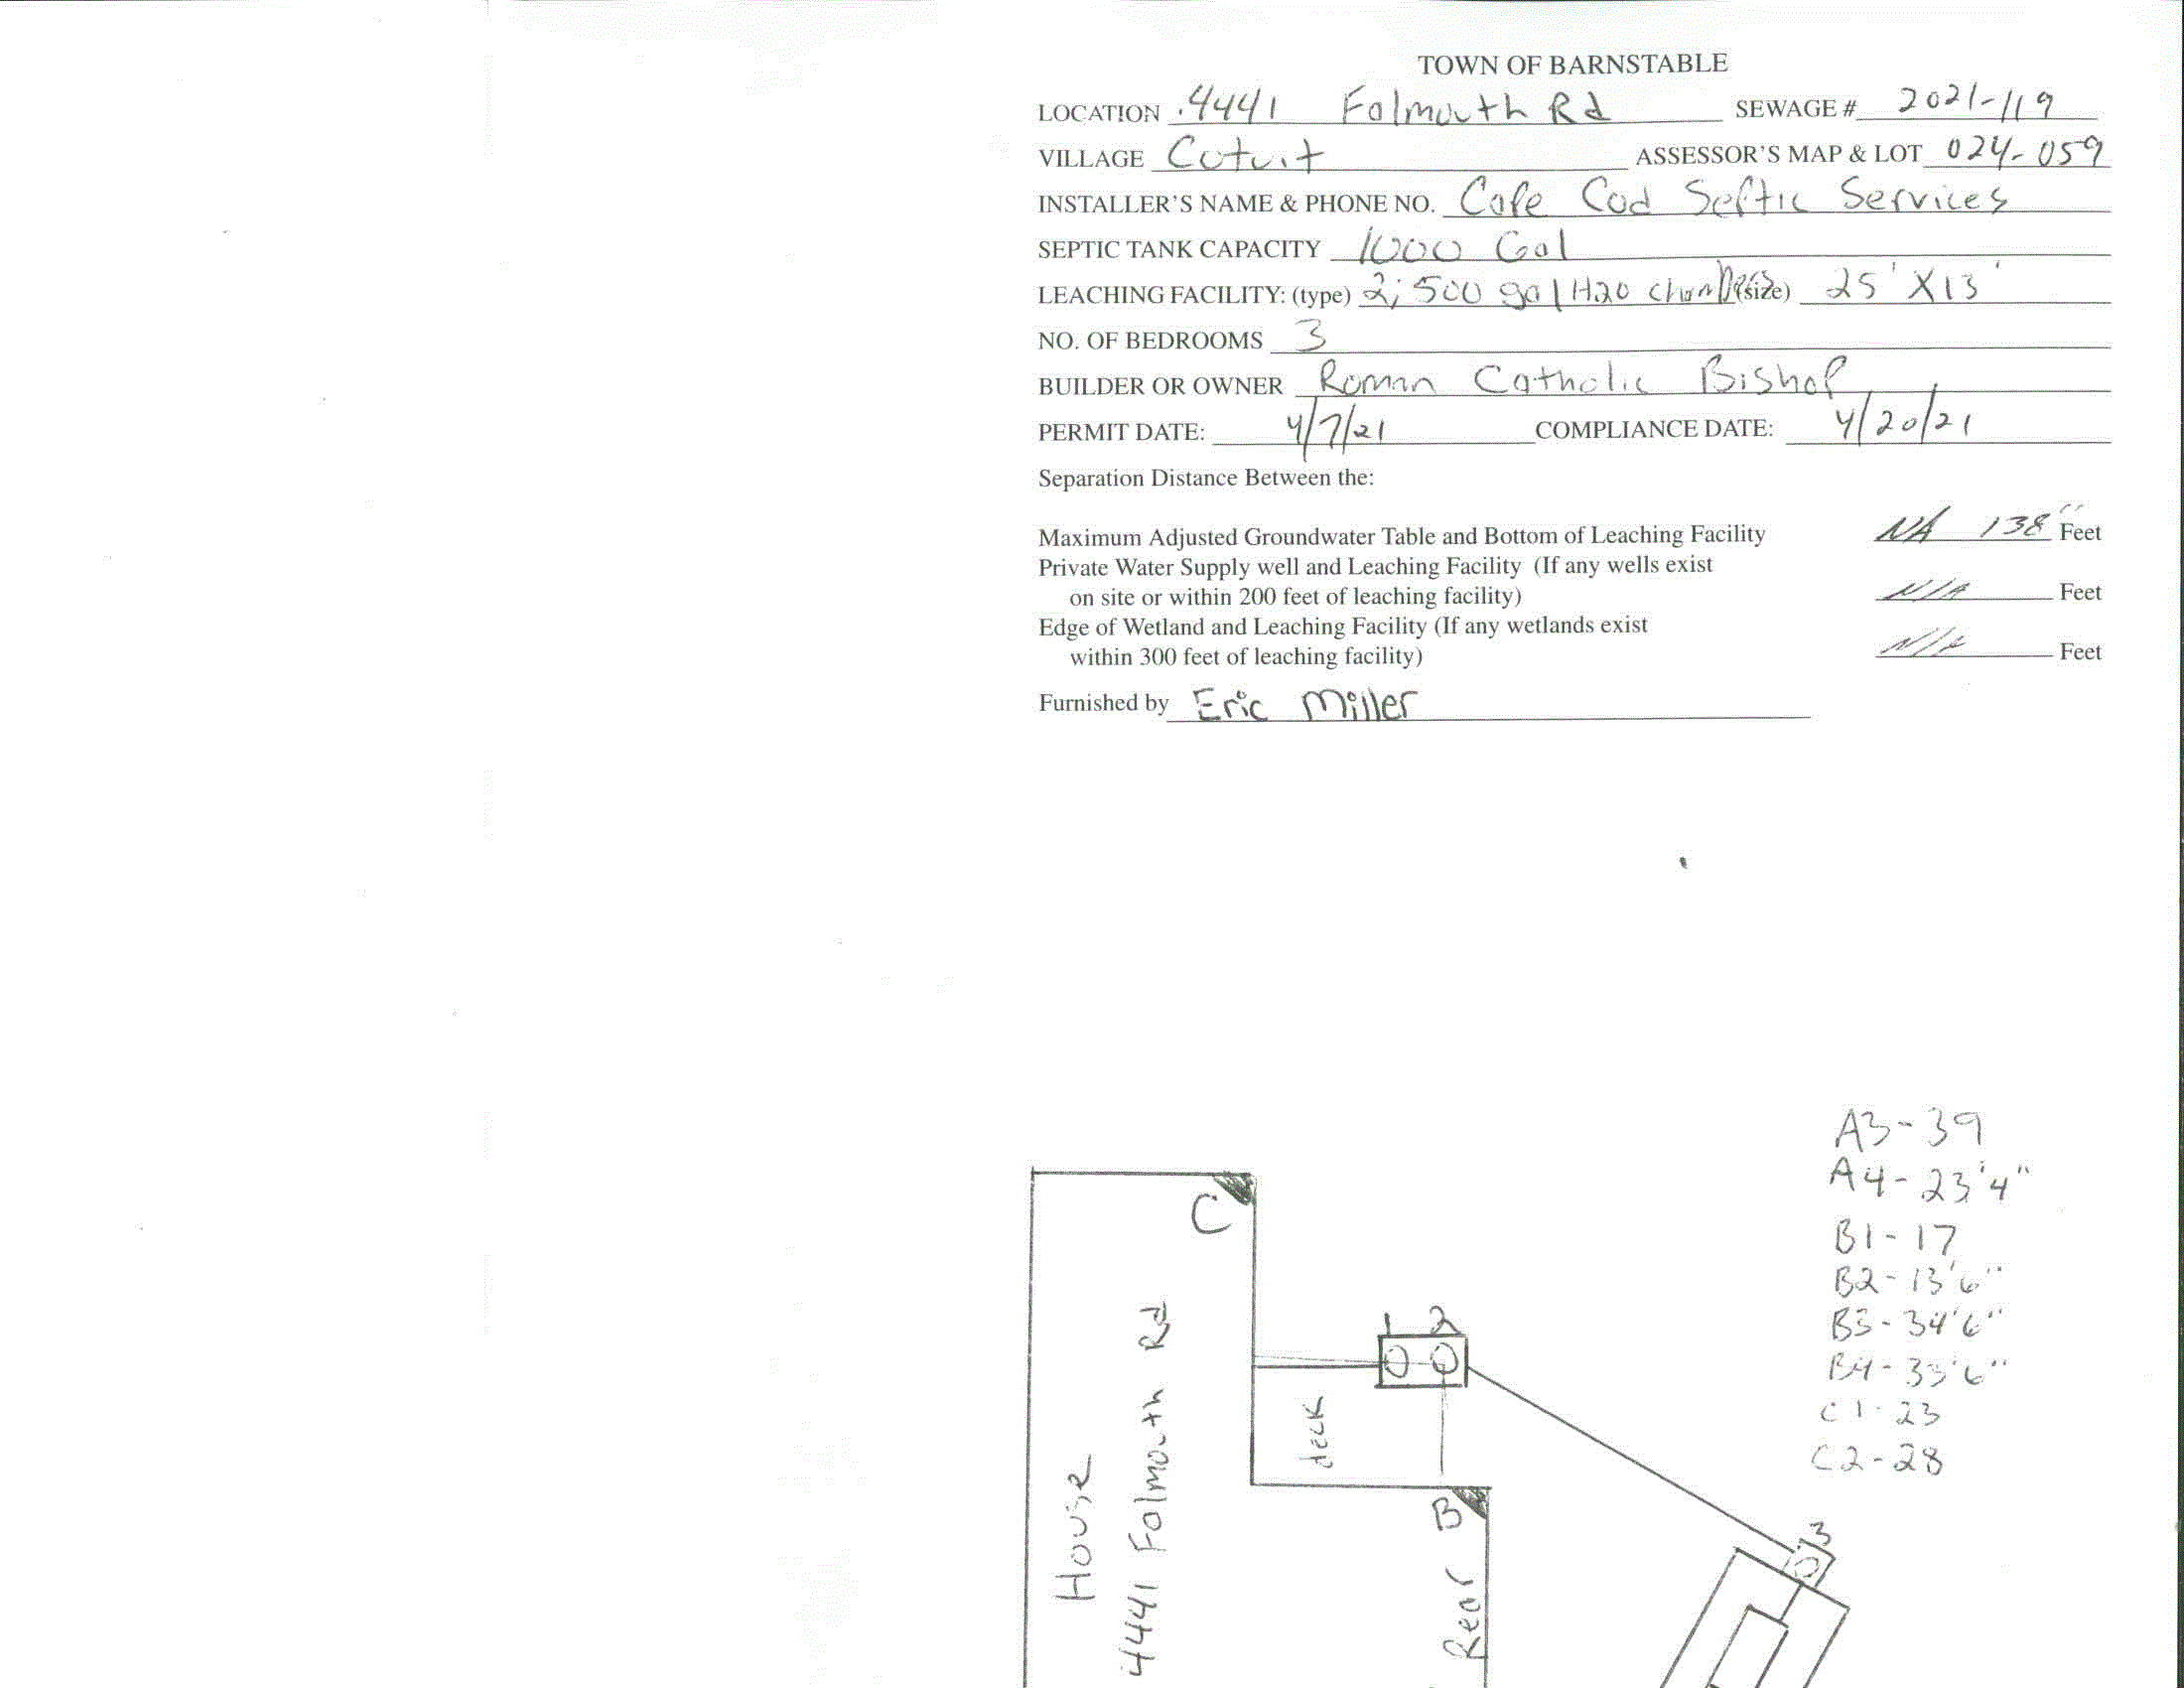 TOWN OF BARNSTABLE
LOCATION .4441 Falmouth Rd SEWAGE # 2021-119
VILLAGE Cotuit ASSESSOR'S MAP & LOT 024-059
INSTALLER'S NAME & PHONE NO. Cape Cod Septic Services
SEPTIC TANK CAPACITY 1000 Gal
LEACHING FACILITY: (type) 2; 500 gal H20 chambers (size) 25' X 13'
NO. OF BEDROOMS 3
BUILDER OR OWNER Roman Catholic Bishop
PERMIT DATE: 4/7/21 COMPLIANCE DATE: 4/20/21
Separation Distance Between the:
Maximum Adjusted Groundwater Table and Bottom of Leaching Facility NA 138" Feet
Private Water Supply well and Leaching Facility (If any wells exist
on site or within 200 feet of leaching facility) N/A Feet
Edge of Wetland and Leaching Facility (If any wetlands exist
within 300 feet of leaching facility) N/A Feet
Furnished by Eric Miller
A3-39
A4-23'4"
B1-17
B2-13'6"
B3-34'6"
B4-33'6"
C1-23
C2-28
C
1 2
deck
House
4441 Falmouth Rd
B
Rear
3